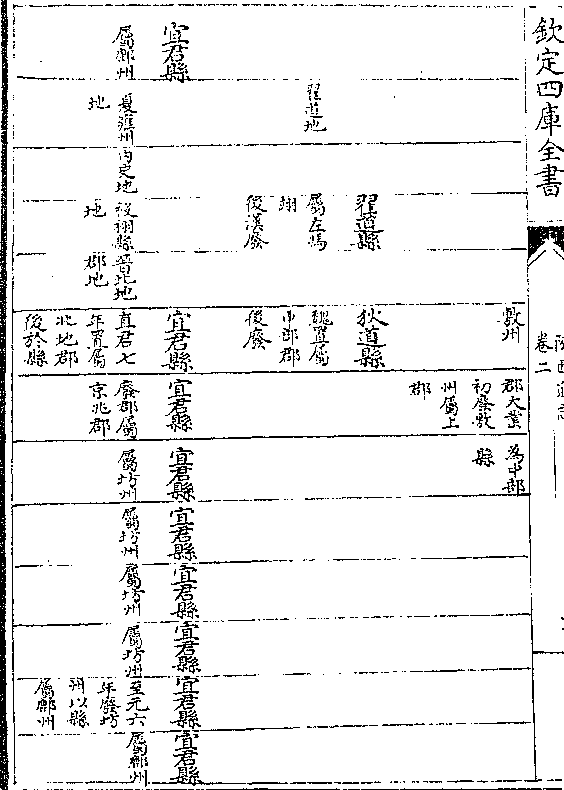 欽定四庫全書
卷二
宜君縣
屬鄜州
翟道地
夏雍州
地
内史地
翟道縣
屬左馮
翊
後漢廢
祋祤縣
地
晉北地
郡地
敷州
狄道縣
魏置屬
中部郡
後廢
宜君縣
真君七
年置屬
北地郡
後於縣
郡大業
初廢敷
州屬上
郡
宜君縣
廢郡屬
京兆郡
為中部
縣
宜君縣
屬坊州
宜君縣
屬坊州
宜君縣
屬坊州
宜君縣
屬坊州
宜君縣
至元六
年廢坊
州以縣
屬鄜州
宜君縣
屬鄜州